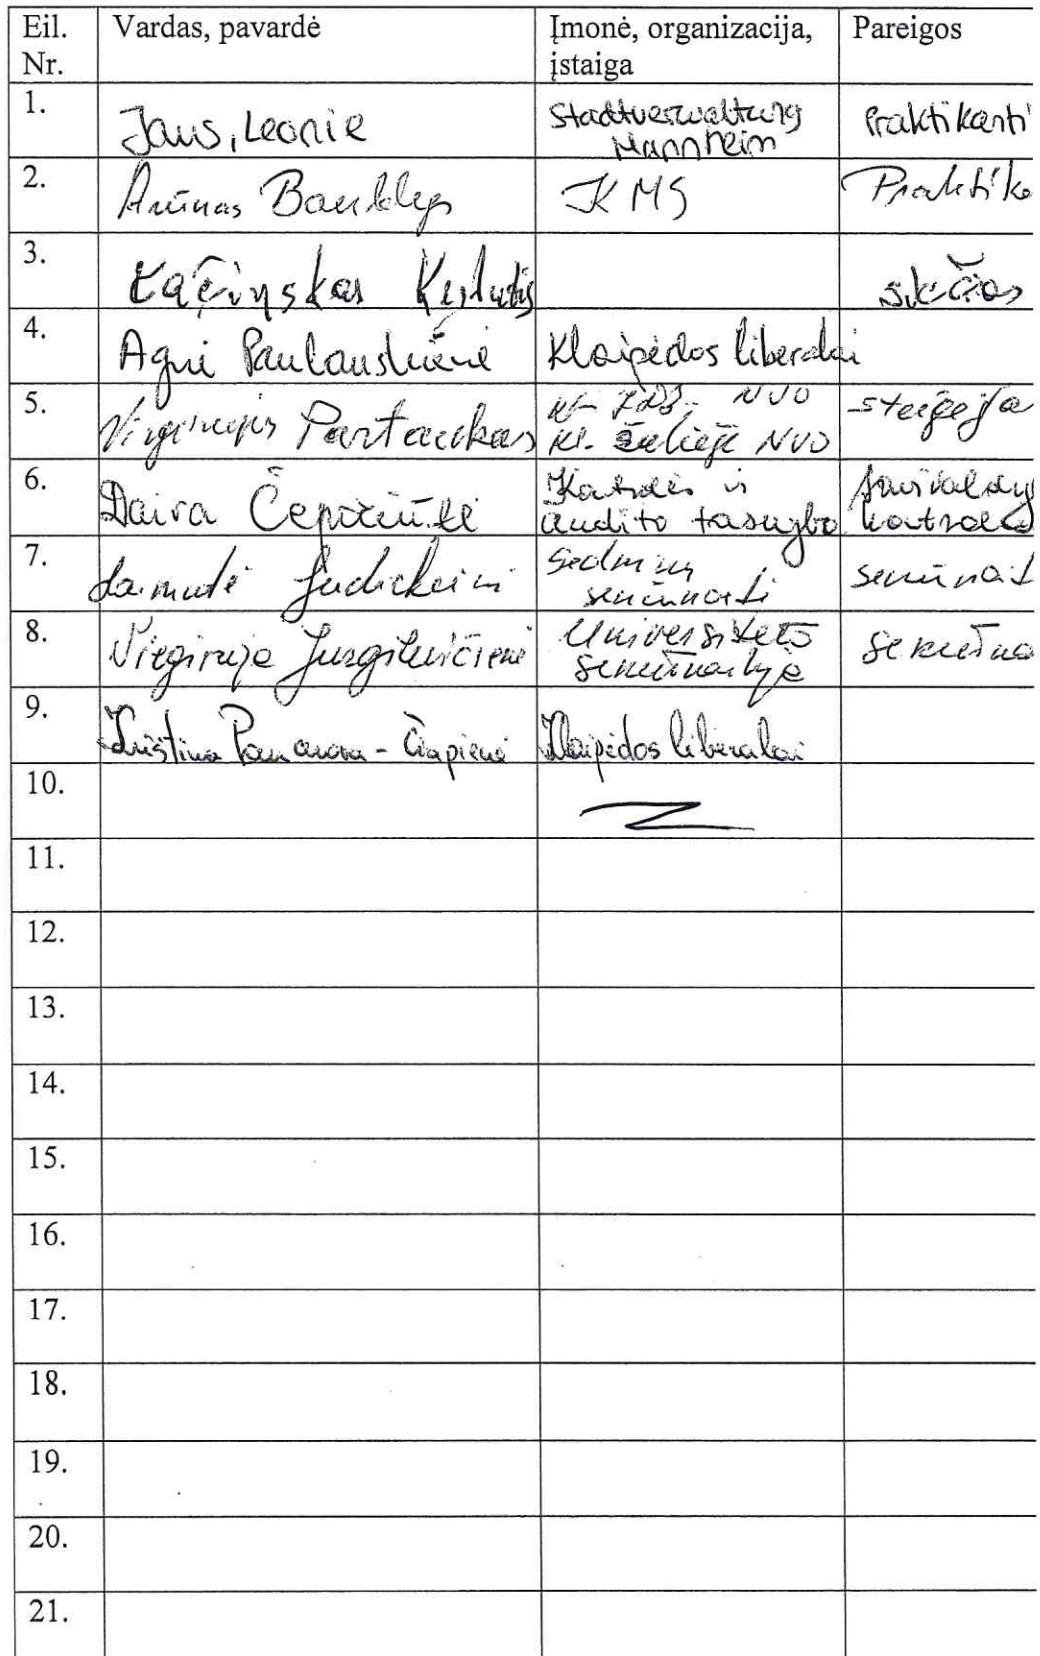 Eil. Nr. Vardas, pavardė Įmonė, organizacija, įstaiga Pareigos
1. Jaus, Leonie Stadtverwaltung Mannheim Praktikanti
2. Arūnas KMS Praktike
3. Kęstutis
4. Agnė Paulauskienė Klaipėdos liberalai
5. Virginijus Partaukas NVO Kl. žalieji NVO steigėja
6. Daira Čeponiūtė Kontrolės ir audito tarnyba savivaldyb kontrolė
7. Laimutė seniūnaiti seniūnait
8. Virginija Jurgilevičienė Universiteto seniūnaitija seniūna
9. Kristina - Čiapienė Klaipėdos liberalai
10.
11.
12.
13.
14.
15.
16.
17.
18.
19.
20.
21.